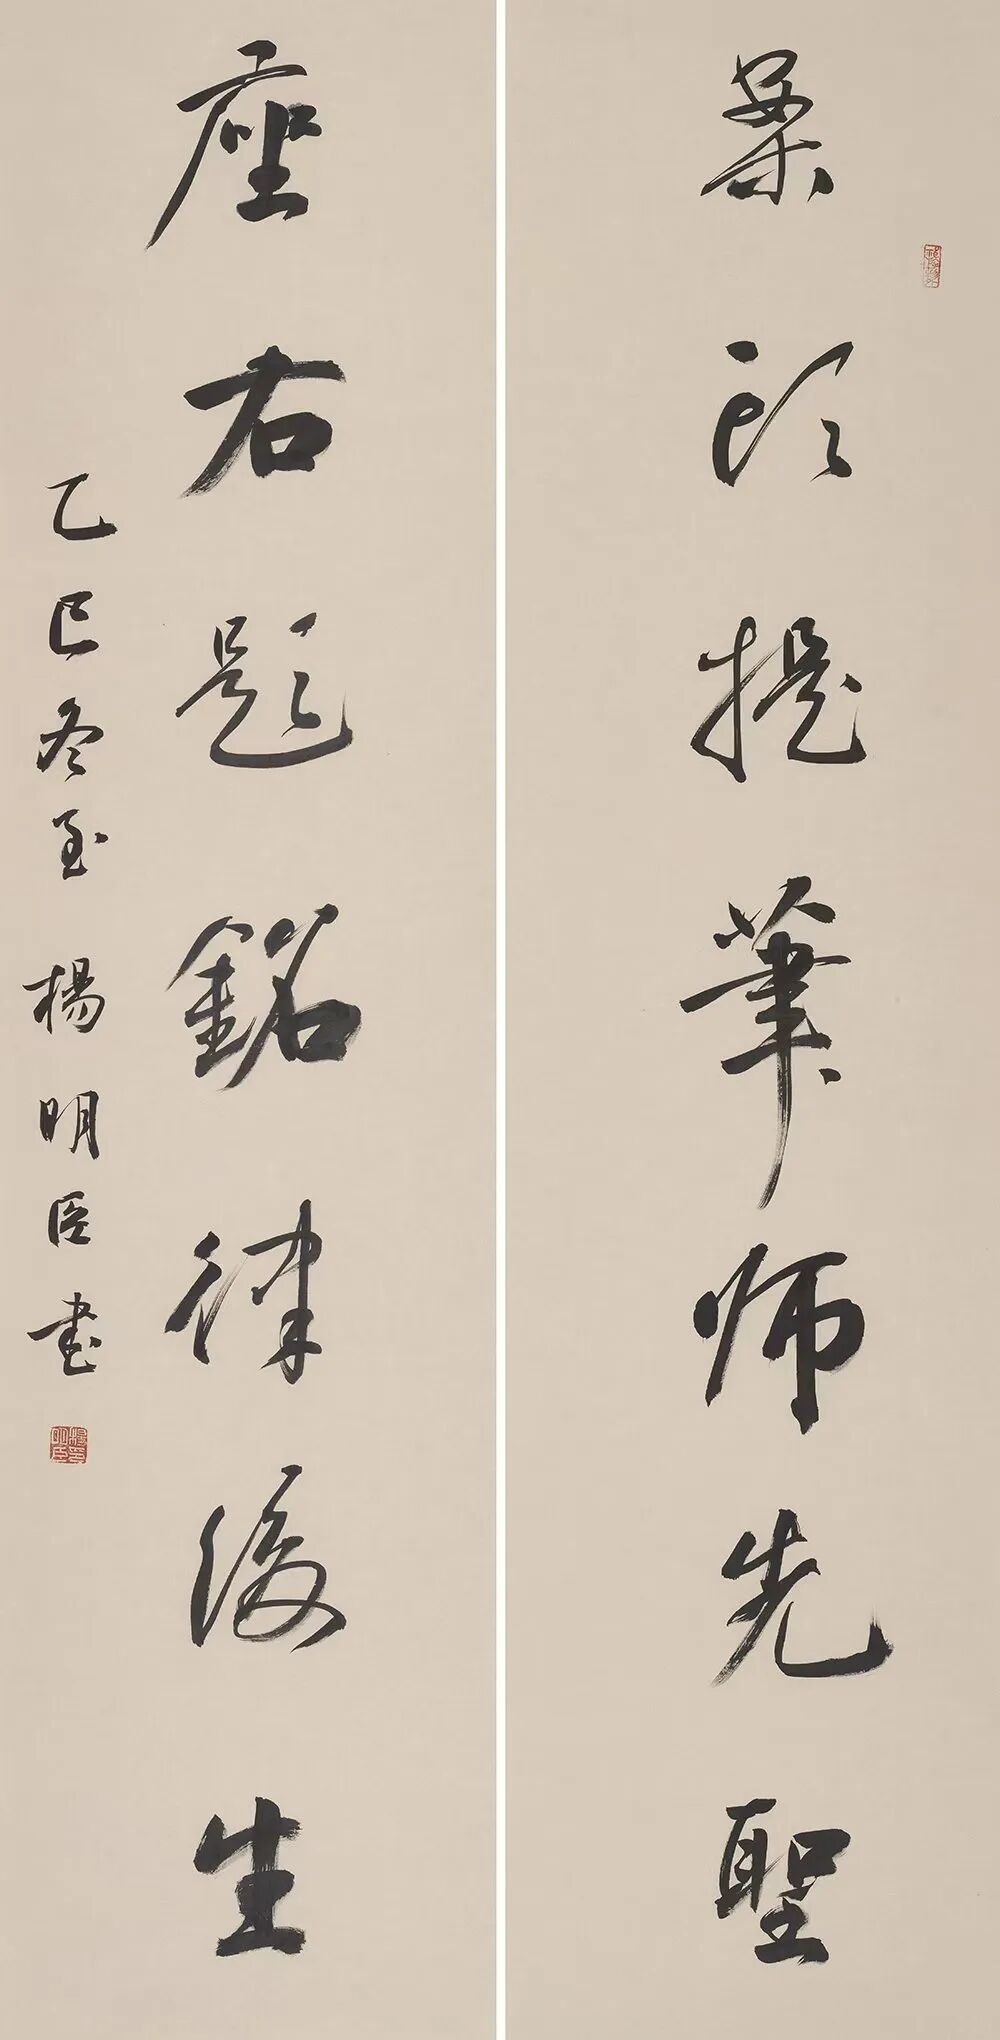 案頭提筆师先聖
座右題銘律後生
乙巳冬至 楊明臣書
楊明臣印